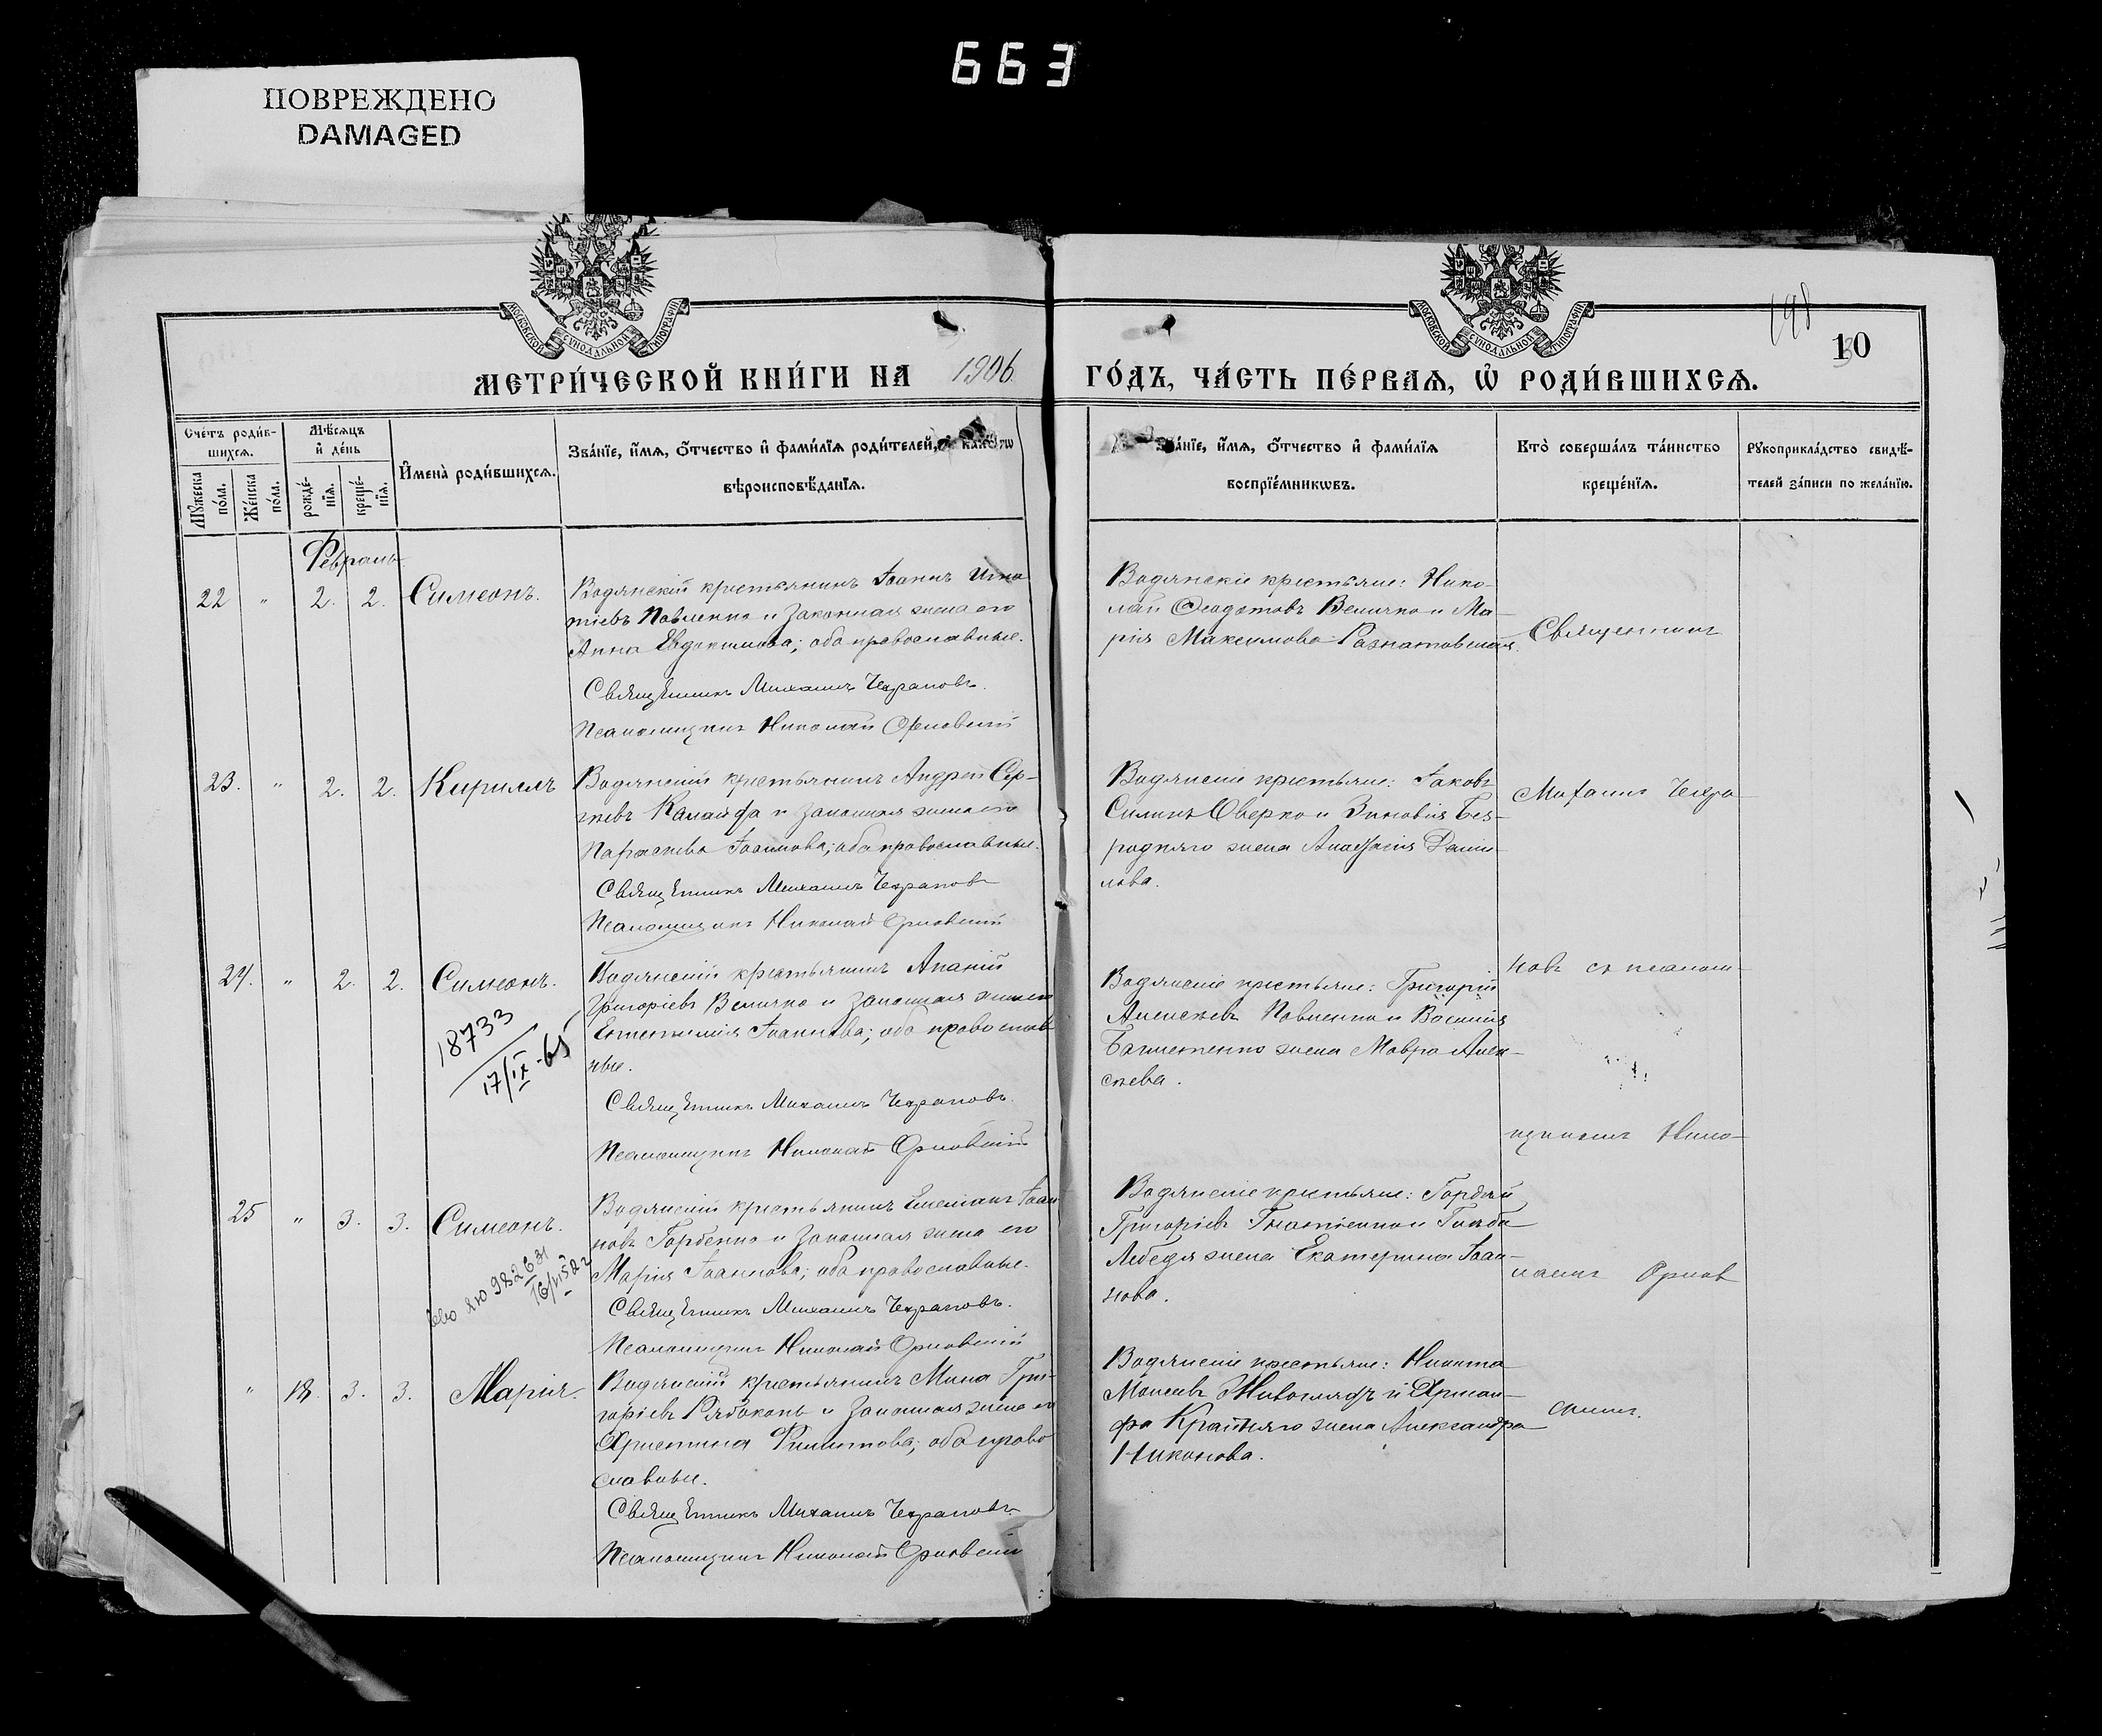 663
ПОВРЕЖДЕНО
DAMAGED
МОСКОВСКОЙ СѴНОДАЛЬНОЙ ТИПОГРАФІИ
МОСКОВСКОЙ СѴНОДАЛЬНОЙ ТИПОГРАФІИ
198
10
МЕТРИ́ЧЕСКОЙ КНИ́ГИ НА 1906 ГО́ДЪ, ЧА́СТЬ ПЕ́РВАЯ, Ѡ҆ РОДИ́ВШИХСЯ.
Сче́тъ роди́в-
шихся.
Мѣ́сяцъ
и҆ де́нь
Му́жеска по́ла.
Же́нска по́ла.
рожде́-нїя.
креще́-нїя.
И҆мена̀ роди́вшихся.
Зва́нїе, и҆́мя, ѻ҆́тчество и҆ фами́лїя роди́телей, и҆ како́гѡ
вѣроисповѣ́данїя.
Зва́нїе, и҆́мя, ѻ҆́тчество и҆ фами́лїя
воспрїе́мникѡвъ.
Кто̀ соверша́лъ та́инство
креще́нїя.
Рукоприкла́дство свидѣ́-
телей за́писи по жела́нїю.
Февраль
22 " 2. 2. Симеонъ.
Водянскій крестьянинъ Іоаннъ Игна
тіевъ Павленко и законная жена его
Анна Евдокимова; оба православные.
Священникъ Михаилъ Чехрановъ.
Псаломщикъ Николай Орловскій
Водянскіе крестьяне: Нико-
лай Ѳеодотовъ Величко и Ма-
рія Максимова
Священникъ
23. " 2. 2. Кириллъ
Водянскій крестьянинъ Андрей Сер-
гѣевъ Калайда и законная жена его
Параскева Іоакимова; оба православные.
Священникъ Михаилъ Чехрановъ
Псаломщикъ Николай Орловскій
Водянскіе крестьяне: Іаковъ
Силинъ Оверко и Зиновія Без-
родняго жена Анастасія Дани
лова.
Михаилъ Чехра-
24. " 2. 2. Симеонъ.
18733
17/IX-65
Водянскій крестьянинъ Ананій
Григоріевъ Величко и законная жена его
Іоаннова; оба православ
ные.
Священникъ Михаилъ Чехрановъ.
Псаломщикъ Николай Орловскій
Водянскіе крестьяне: Григорій
Алексѣевъ Павленко и Василія
жена Мавра Алек-
сѣева.
новъ съ псалом-
щикомъ Нико-
25 " 3. 3. Симеонъ.
Водянскій крестьянинъ Емеліанъ Іоан
новъ Горбенко и законная жена его
Марія Іоаннова; оба православные.
Священникъ Михаилъ Чехрановъ.
Псаломщикъ Николай Орловскій
Водянскіе крестьяне: Гордѣй
Григоріевъ Игнатенко и Глѣба
Лебедя жена Екатерина Іоан-
нова.
лаемъ Орлов
" 18. 3. 3. Марія.
Водянскій крестьянинъ Мина Гри-
горіевъ Рябоконь и законная жена его
Христина Филиппова; оба право
славные.
Священникъ Михаилъ Чехрановъ.
Псаломщикъ Николай Орловскій
Водянскіе крестьяне: Никита
Моисеевъ Живоглядъ и
Крайняго жена Александра
Никонова.
скимъ.